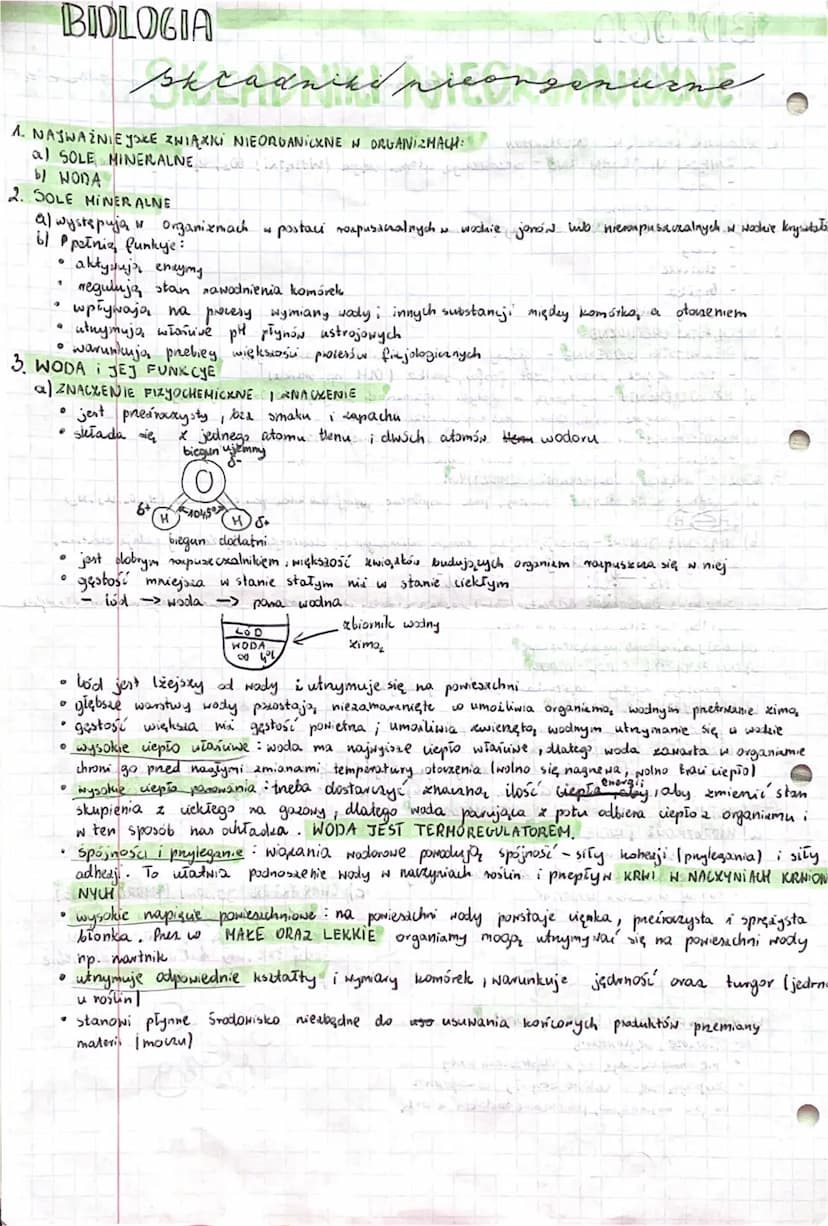 BIOLOGIA
składniki nieorganiczne
1. NAJWAŻNIEJSZE ZWIĄZKI NIEORGANICZNE W ORGANIZMACH:
a) SOLE MINERALNE
b) WODA
2. SOLE MINERALNE
a) występują w organizmach w postaci rozpuszczalnych w wodzie jonów lub nierozpuszczalnych w wodzie kryształó
b) Pełnią funkcje:
• aktywują enzymy
• regulują stan nawodnienia komórek
• wpływają na procesy wymiany wody i innych substancji między komórką a otoczeniem
• utrzymują właściwe pH płynów ustrojowych
• warunkują przebieg większości procesów fizjologicznych
3. WODA i JEJ FUNKCJE
a) ZNACZENIE FIZYOCHEMICZNE I ZNACZENIE
• jest przeźroczysty, bez smaku i zapachu
• składa się z jednego atomu tlenu i dwóch atomów wodoru
biegun ujemny
δ-
O
δ+ H 104,5° H δ+
biegun dodatni
• jest dobrym rozpuszczalnikiem, większość związków budujących organizm rozpuszcza się w niej
• gęstość mniejsza w stanie stałym niż w stanie ciekłym
- lód → woda → para wodna
LÓD
WODA
od 4°C
zbiornik wodny
zimą
• lód jest lżejszy od wody i utrzymuje się na powierzchni
• głębsze warstwy wody pozostają niezamarznięte co umożliwia organizmą wodnym przetrwanie zimą
• gęstość większa niż gęstość powietrza; umożliwia zwierzętą wodnym utrzymanie się w wodzie
• wysokie ciepło właściwe: woda ma najwyższe ciepło właściwe, dlatego woda zawarta w organizmie
chroni go przed nagłymi zmianami temperatury otoczenia (wolno się nagrzewa, wolno traci ciepło)
• wysokie ciepło parowania: trzeba dostarczyć znaczną ilość energii, aby zmienić stan
skupienia z ciekłego na gazowy, dlatego woda parująca z potu odbiera ciepło z organizmu i
w ten sposób nas ochładza. WODA JEST TERMOREGULATOREM.
• Spójności i przyleganie: wiązania wodorowe powodują spójność - siły kohezji (przylegania) i siły
adhezji. To ułatwia podnoszenie wody w naczyniach roślin i przepływ KRWI W NACZYNIACH KRWION
NYCH
• wysokie napięcie powierzchniowe: na powierzchni wody powstaje cienka, przeźroczysta i sprężysta
błonka. Przez co MAŁE ORAZ LEKKIE organizmy mogą utrzymywać się na powierzchni wody
np. nartnik
• utrzymuje odpowiednie kształty i wymiary komórek, warunkuje jędrność oraz turgor (jedrn
u roślin)
• stanowi płynne środowisko niezbędne do usuwania końcowych produktów przemiany
materii (moczu)